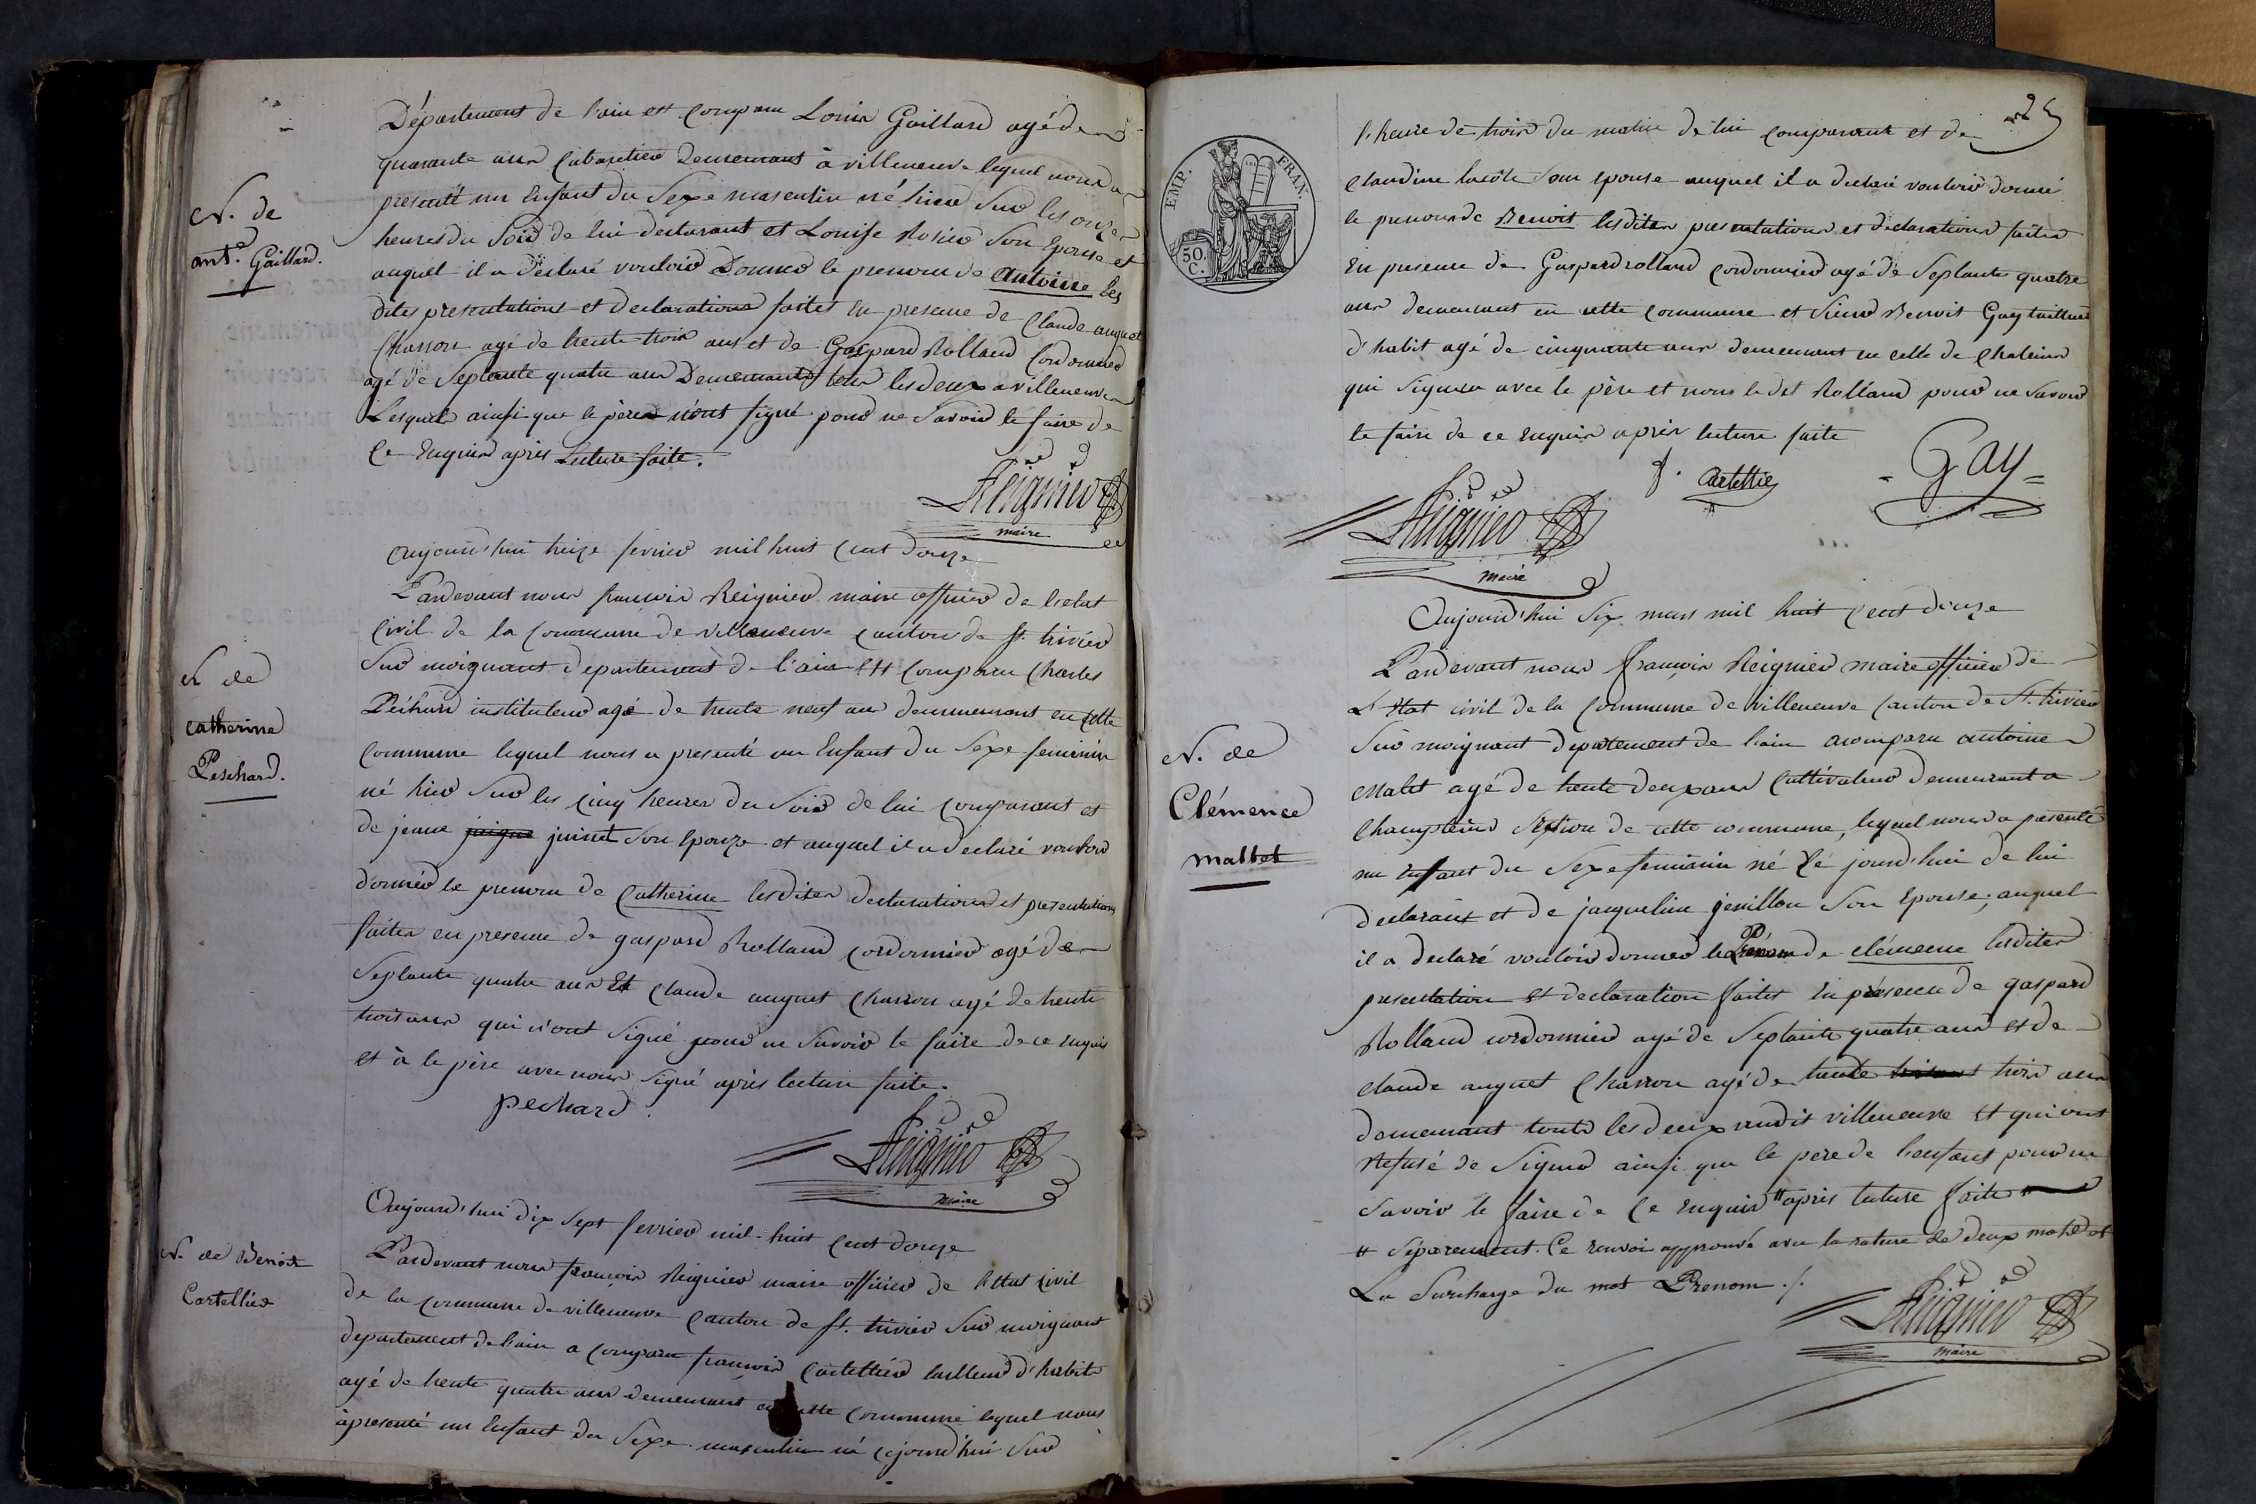 Département de l'ain est comparu Louis Gaillard agé de
quarante ans Cabaretier demeurant à villeneuve lequel nous a
presenté un Enfant du Sexe masculin né hier Sur les onze
N. de
heures du Soir de lui declarant et Louise Son Epouse et
ant.e Gaillard.
auquel il a declaré vouloir Donner le prenom de antoine les
dites presentations et declarations faites en presence de Claude auguet
Charron agé de trente trois ans et de Gaspard Rolland Cordonnier
agé de Septante quatre ans Demeurants tous les deux a villeneuve
Lesquels ainsi que le père n'ont signé pour ne Savoir le faire de
Ce Enquis après Lecture faite.
Reignier
maire
Aujourd'hui treize fevrier mil huit Cent douze
Pardevant nous francois Reignier maire officier de l'etat
Civil de la Commune de villeneuve Canton de St. trivier
N de
Sur moignant departement de l'ain est comparu Charles
Péchard instituteur agé de trente neuf ans demeurant en cette
catherine
commune lequel nous a presenté un Enfant du Sexe feminin
Peschard.
né hier Sur les Cinq heures du Soir de lui comparant et
de jeane juinet Son Epouze et auquel il a declaré vouloir
donner le prenom de Catherine lesdites declarations et presentations
faites en presence de gaspard Rolland Cordonnier agé de
Septante quatre ans Et Claude auguet Charron agé de trente
trois ans qui n'ont Signé pour ne Savoir le faire de ce enquis
et à le père avec nous Signé après lecture faite.
pechard
Reignier
maire
Aujourd'hui dix Sept fevrier mil huit Cent douze
N. de Benoit
Pardevant nous françois Reignier maire officier de l'Etat Civil
Cartellier
de la commune de villeneuve Canton de St. trivier Sur moignant
departement de l'ain a comparu francois Cartellier tailleur d'habits
agé de trente quatre ans demeurant en cette commune lequel nous
à presenté un Enfant du Sexe masculin né cejourd'hui Sur
25
l'heure de trois du matin de lui comparant et de
Claudine Son epouse auquel il a declaré vouloir donné
le prenom de Benoit lesdites presentations et declarations faites
En presence de Gaspard rolland cordonnier agé de Septante quatre
ans demeurant en cette commune et Sieur Benoit Gay tailleur
d'habit agé de cinquante ans demeurant en celle de Chaleins
qui Signera avec le père et nous le dit Rolland pour ne Savoir
le faire de ce enquis après lecture faite
f. Cartellier
Gay
Reignier
maire
EMP. FRAN.
50.
C.
Aujourd'hui Six mars mil huit Cent douze
Pardevant nous françois Reignier maire officier de
L'Etat civil de la Commune de villeneuve Canton de St. trivier
N. de
Sur moignant departement de l'ain a comparu antoine
Clémence
malet agé de trente deux ans Cultivateur demeurant a
Champteins Section de cette commune, lequel nous a presenté
mallet
un enfant du Sexe feminin né Ce jourd'hui de lui
declarant et de jacqueline genillon Son Epouse; auquel
il a declaré vouloir donner le Prénom de clémence lesdites
presentation et declaration faites En présence de gaspard
Rolland cordonnier agé de Septante quatre ans et de
claude auguet Charron agé de trente trois ans
demeurant touts les deux audit villeneuve et qui ont
Refusé de Signer ainsi que le pere de l'enfant pour ne
Savoir le faire de Ce enquis # après lecture faite
# Séparement. Ce renvoi approuvé avec la rature de deux mots et
La Surcharge du mot Prenom ./.
Reignier
maire